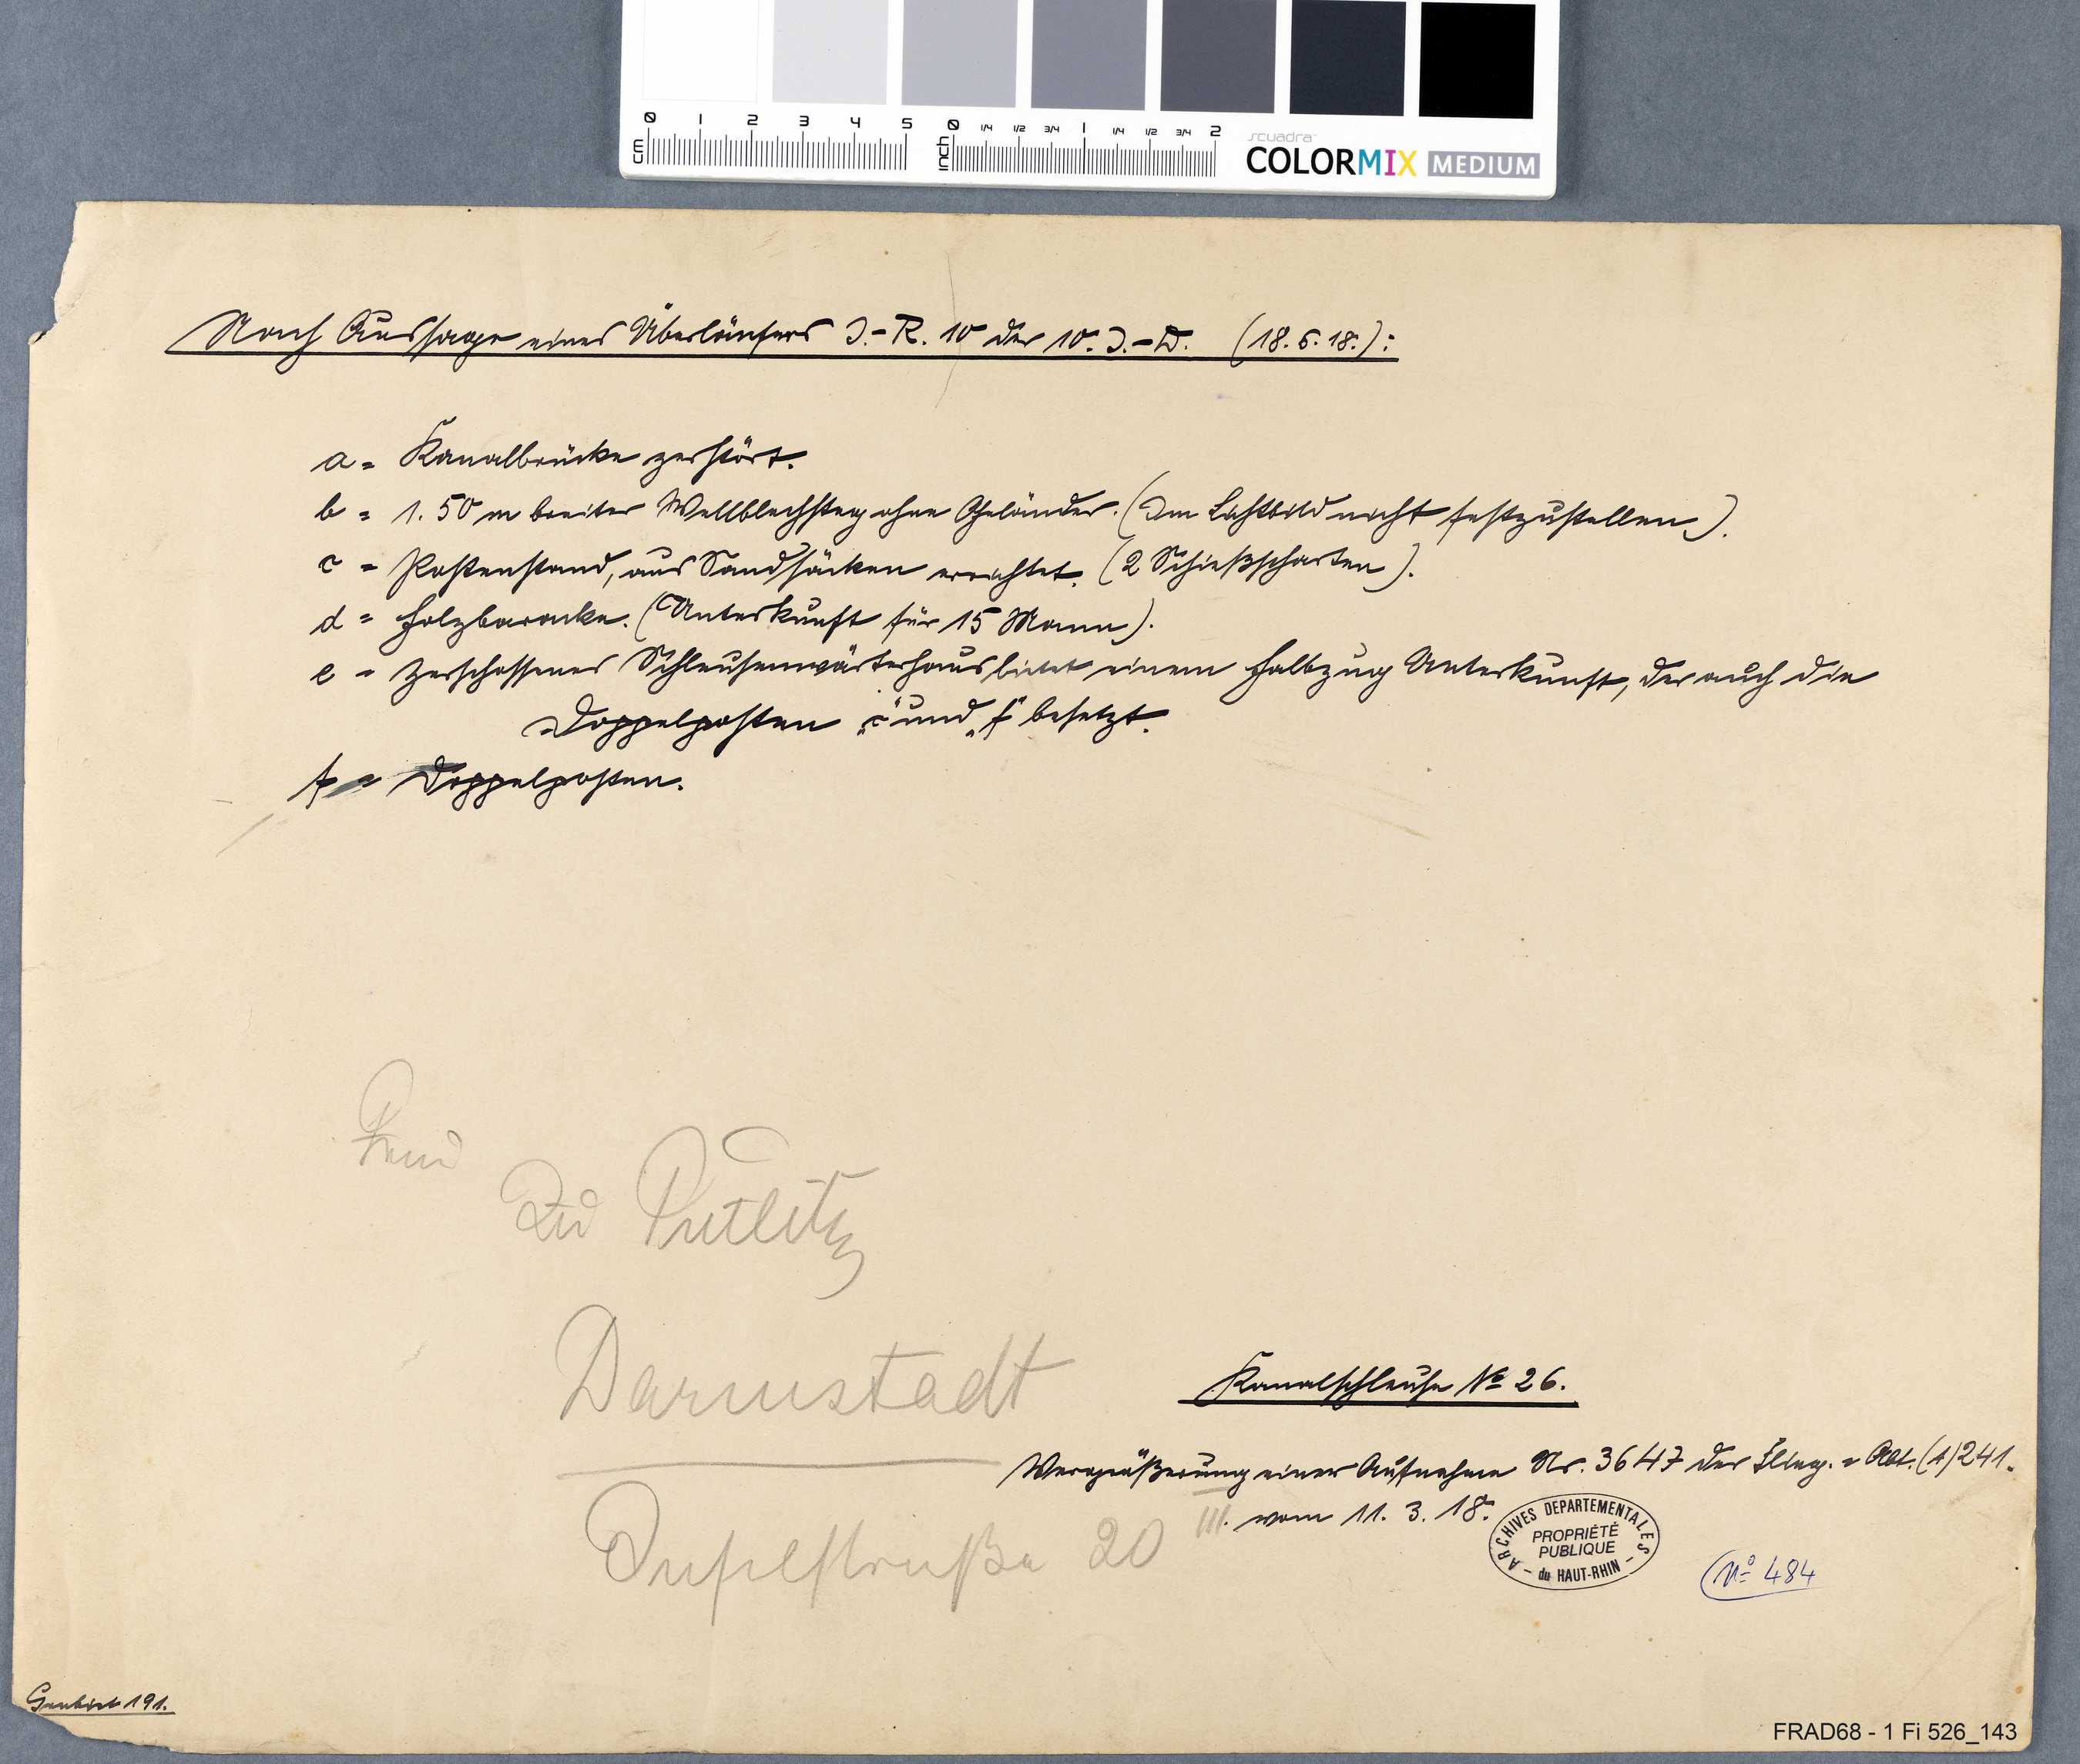 0 1 2 3 4 5 0 1/4 1/2 3/4 1 1/4 1/2 3/4 2
cm inch
scuadra
COLORMIX MEDIUM
Nach Aussage eines Überläufers J.-R. 10 der 10. J.-D. (18.6.18.):
a = Kanalbrücke zerstört.
b = 1.50 m breiter Wellblechsteg ohne Geländer. (Im Lichtbild nicht festzustellen).
c = Postenstand, aus Sandsäcken errichtet. (2 Schießscharten).
d = Holzbaracke. (Unterkunft für 15 Mann).
e = Zerschossenes Schleusenwärterhaus bietet einem Halbzug Unterkunft, der auch die
Doppelposten „c“ und „f“ besetzt.
f = Doppelposten.
Putlitz
Darmstadt
Inselstraße 20 III.
Kanalschleuse No 26.
Vergrößerung einer Aufnahme Nr. 3647 der Flieg.-Abt. (A) 241.
vom 11. 3. 18.
ARCHIVES DEPARTEMENTALES
PROPRIÉTÉ
PUBLIQUE
- du HAUT-RHIN -
No 484
191.
FRAD68 - 1 Fi 526_143